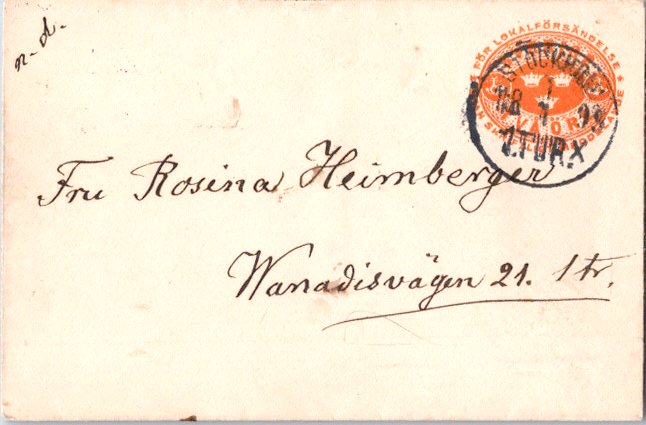 n. d.
FÖR LOKALFÖRSÄNDELSE
STOCKHOLM
1
7
1.TUR.
Fru Rosina Heimberger
Wanadisvägen 21. 1 tr.